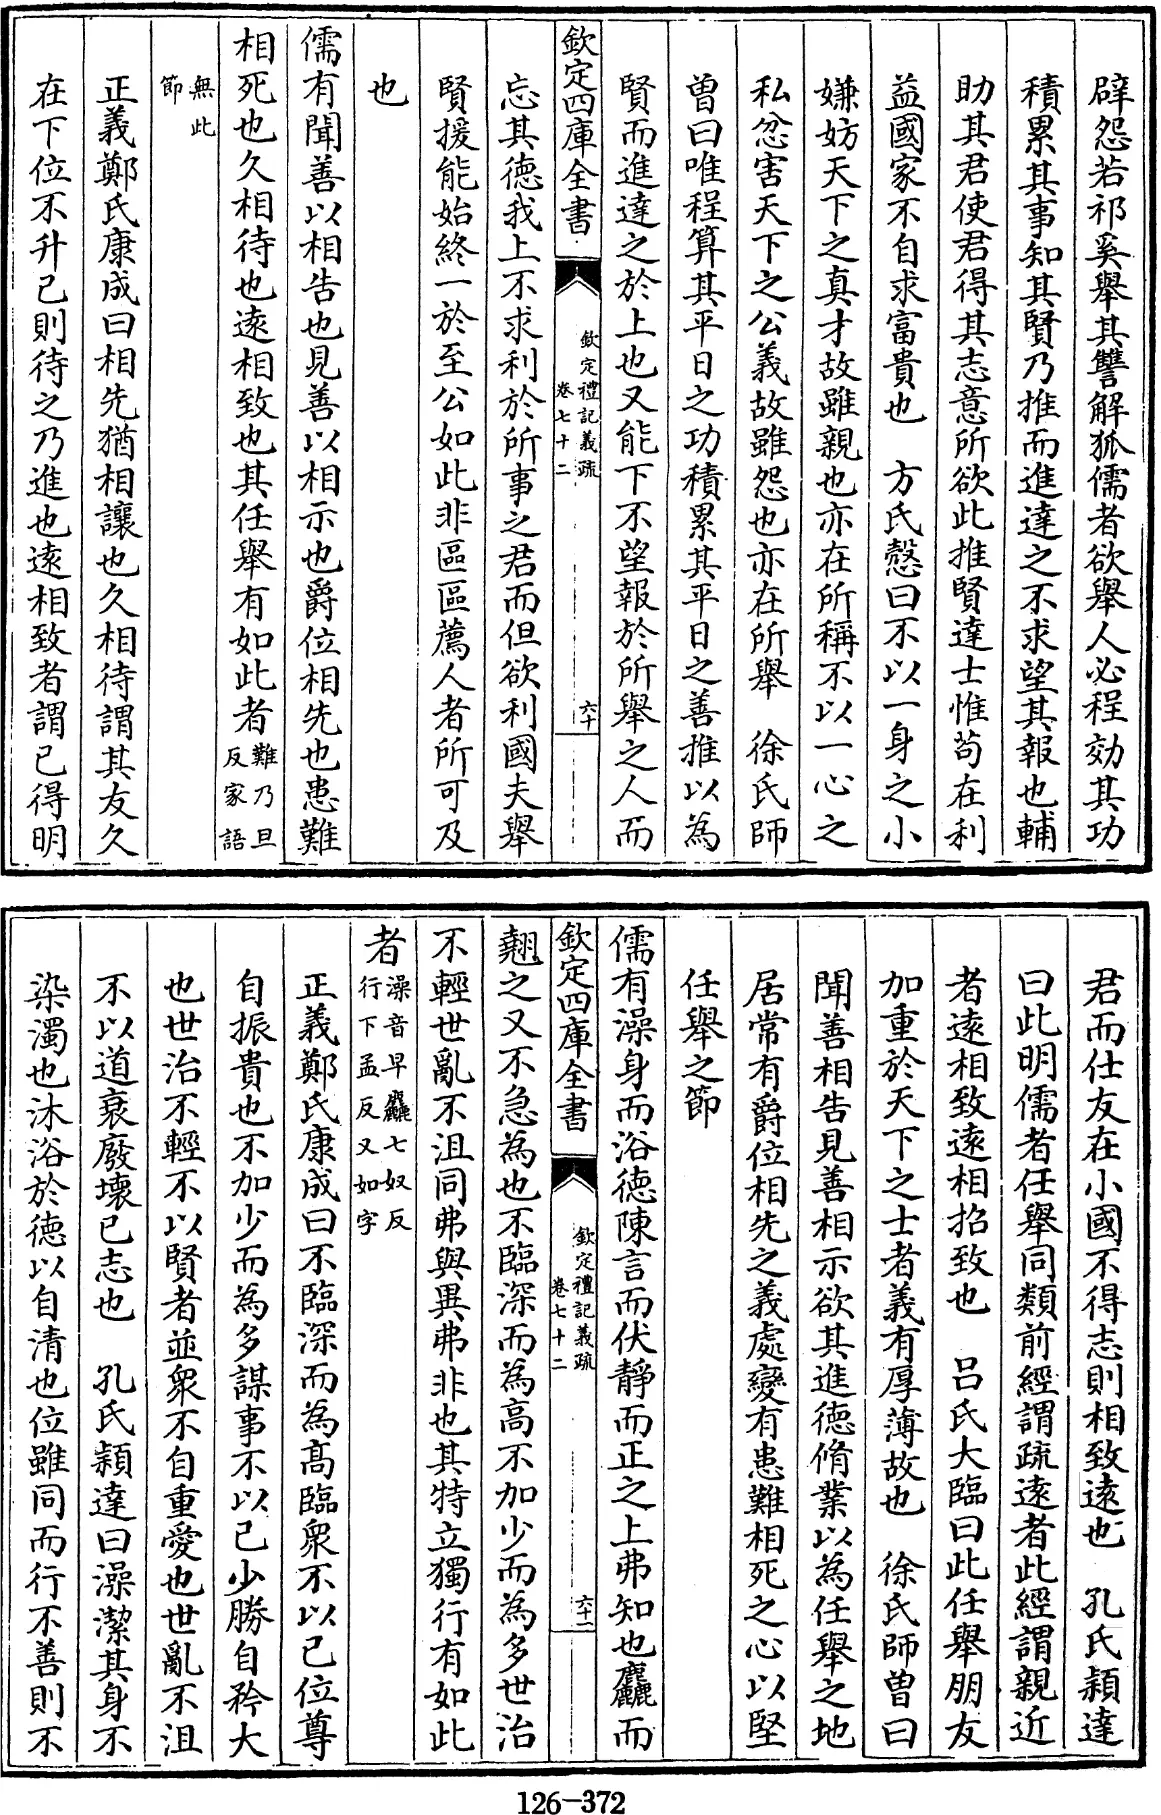 辟怨若祁奚舉其讐解狐儒者欲舉人必程効其功
積累其事知其賢乃推而進達之不求望其報也輔
助其君使君得其志意所欲此推賢達士惟苟在利
益國家不自求富貴也　方氏慤曰不以一身之小
嫌妨天下之真才故雖親也亦在所稱不以一心之
私忿害天下之公義故雖怨也亦在所舉　徐氏師
曽曰唯程算其平日之功積累其平日之善推以為
賢而進達之於上也又能下不望報於所舉之人而
欽定四庫全書
欽定禮記義疏
卷七十二
六十
忘其德我上不求利於所事之君而但欲利國夫舉
賢援能始終一於至公如此非區區薦人者所可及
也
儒有聞善以相告也見善以相示也爵位相先也患難
相死也久相待也逺相致也其任舉有如此者難乃旦
反家語
無此
節
正義鄭氏康成曰相先猶相讓也久相待謂其友久
在下位不升己則待之乃進也逺相致者謂己得明
君而仕友在小國不得志則相致逺也　孔氏穎達
曰此明儒者任舉同類前經謂疏逺者此經謂親近
者逺相致逺相招致也　呂氏大臨曰此任舉朋友
加重於天下之士者義有厚薄故也　徐氏師曽曰
聞善相告見善相示欲其進德脩業以為任舉之地
居常有爵位相先之義處變有患難相死之心以堅
任舉之節
儒有澡身而浴德陳言而伏靜而正之上弗知也麤而
欽定四庫全書
欽定禮記義疏
卷七十二
六十一
翹之又不急為也不臨深而為高不加少而為多世治
不輕世亂不沮同弗與異弗非也其特立獨行有如此
者澡音早麤七奴反
行下孟反又如字
正義鄭氏康成曰不臨深而為高臨衆不以己位尊
自振貴也不加少而為多謀事不以己少勝自矜大
也世治不輕不以賢者並衆不自重愛也世亂不沮
不以道衰廢壞己志也　孔氏穎達曰澡潔其身不
染濁也沐浴於德以自清也位雖同而行不善則不
126-372